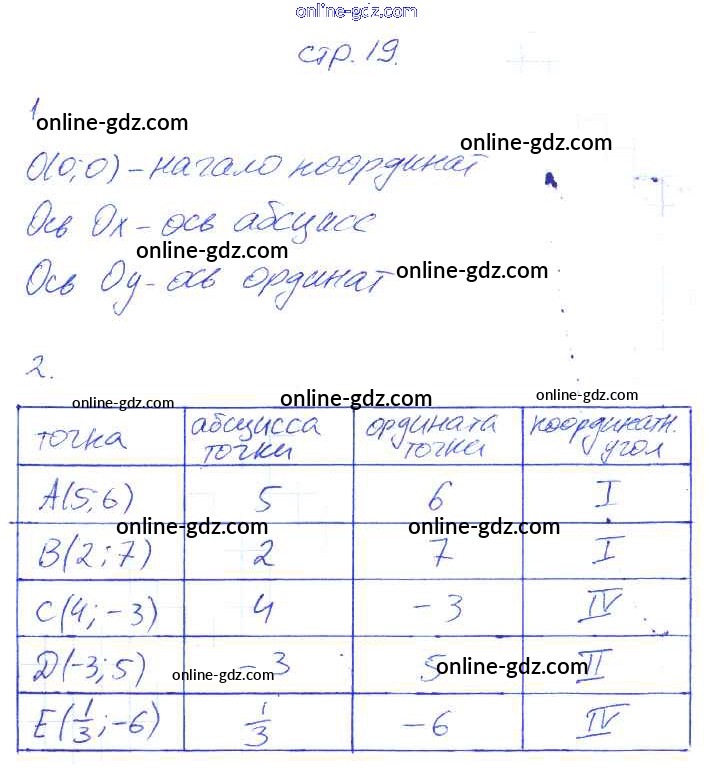 online-gdz.com
стр. 19.
1
online-gdz.com
online-gdz.com
O(0;0) – начало координат
Ось Ox – ось абсцисс
online-gdz.com
online-gdz.com
Ось Oy – ось ординат
2.
online-gdz.com online-gdz.com online-gdz.com
точка абсцисса точки ордината точки координатн. угол
A(5;6) 5 6 I
online-gdz.com online-gdz.com
B(2;7) 2 7 I
C(4;-3) 4 -3 IV
D(-3;5) -3 5 II
online-gdz.com online-gdz.com
E(1/3;-6) 1/3 -6 IV